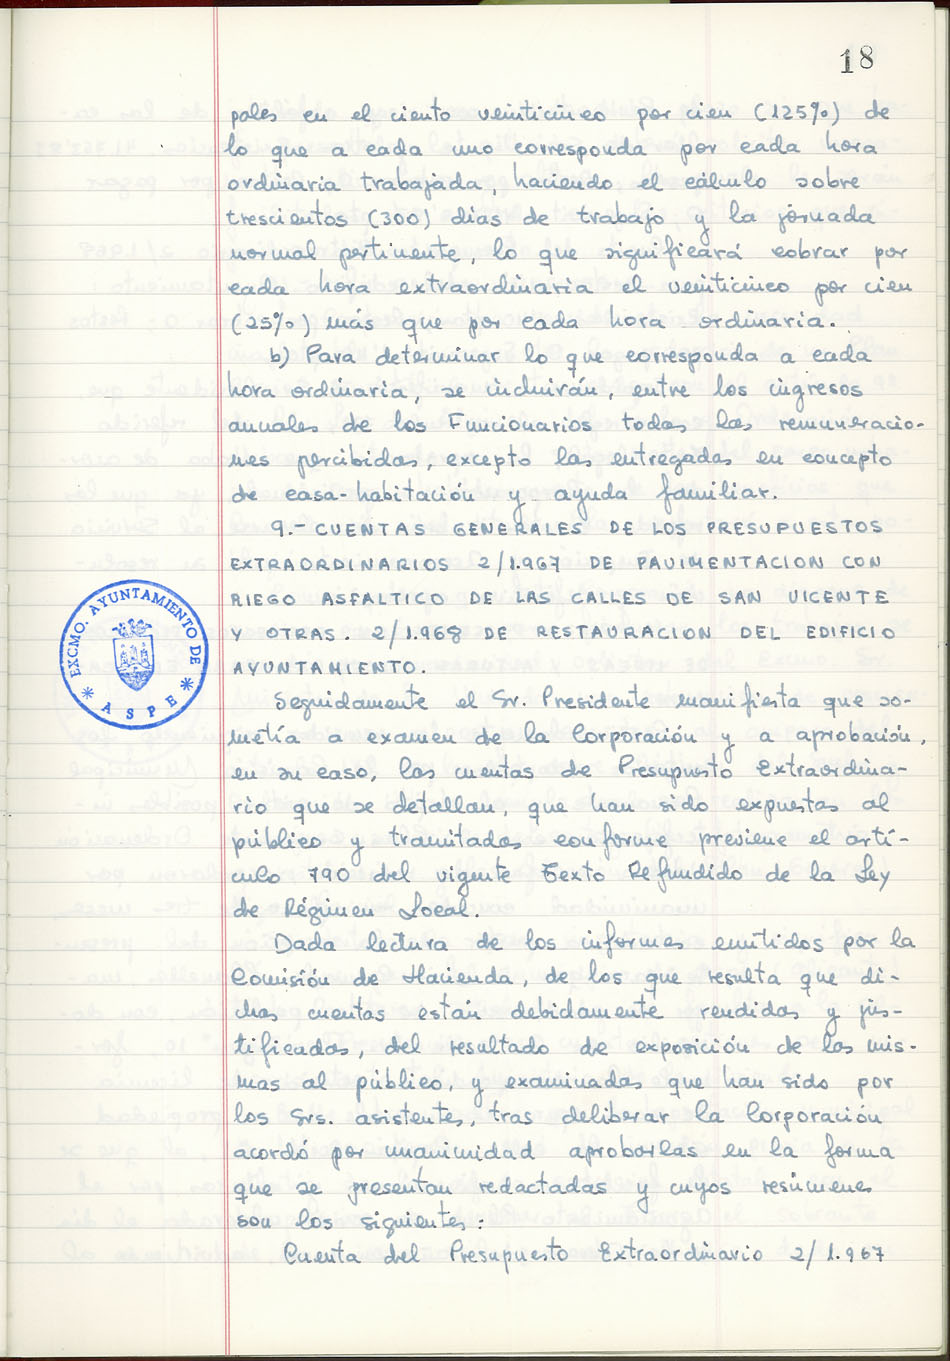 18
pales en el ciento veinticinco por cien (125%) de
lo que a cada uno corresponda por cada hora
ordinaria trabajada, haciendo el cálculo sobre
trescientos (300) días de trabajo y la jornada
normal pertinente, lo que significará cobrar por
cada hora extraordinaria el veinticinco por cien
(25%) más que por cada hora ordinaria.
b) Para determinar lo que corresponda a cada
hora ordinaria, se incluirán, entre los ingresos
anuales de los Funcionarios todas las remuneracio-
nes percibidas, excepto las entregadas en concepto
de casa-habitación y ayuda familiar.
9.- CUENTAS GENERALES DE LOS PRESUPUESTOS
EXTRAORDINARIOS 2/1.967 DE PAVIMENTACION CON
RIEGO ASFALTICO DE LAS CALLES DE SAN VICENTE
Y OTRAS. 2/1.968 DE RESTAURACION DEL EDIFICIO
AYUNTAMIENTO.
EXCMO. AYUNTAMIENTO DE
* ASPE *
Seguidamente el Sr. Presidente manifiesta que so-
metía a examen de la Corporación y a aprobación,
en su caso, las cuentas de Presupuesto Extraordina-
rio que se detallan, que han sido expuestas al
público y tramitadas conforme previene el artí-
culo 790 del vigente Texto Refundido de la Ley
de Régimen Local.
Dada lectura de los informes emitidos por la
Comisión de Hacienda, de los que resulta que di-
chas cuentas están debidamente rendidas y jus-
tificadas, del resultado de exposición de las mis-
mas al público, y examinadas que han sido por
los Srs. asistentes, tras deliberar la Corporación
acordó por unanimidad aprobarlas en la forma
que se presentan redactadas y cuyos resúmenes
son los siguientes:
Cuenta del Presupuesto Extraordinario 2/1.967